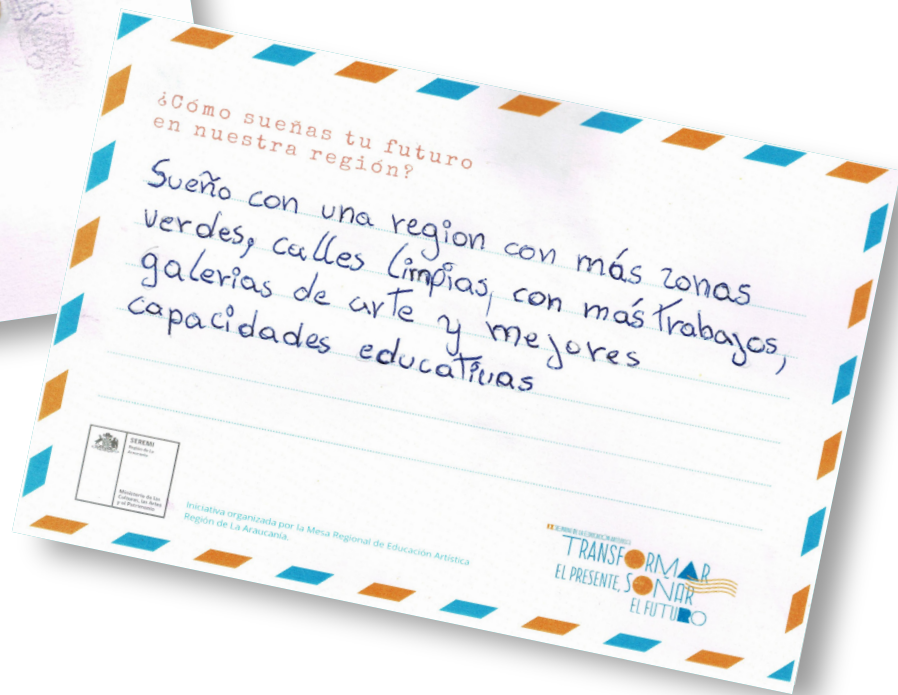 ¿Cómo sueñas tu futuro
en nuestra región?
Sueño con una region con más zonas
verdes, calles limpias, con más trabajos,
galerias de arte y mejores
capacidades educativas
SEREMI
Región de La
Araucanía
Ministerio de las
Culturas, las Artes
y el Patrimonio
Iniciativa organizada por la Mesa Regional de Educación Artística
Región de La Araucanía.
TRANSFORMAR
EL PRESENTE, SOÑAR
EL FUTURO